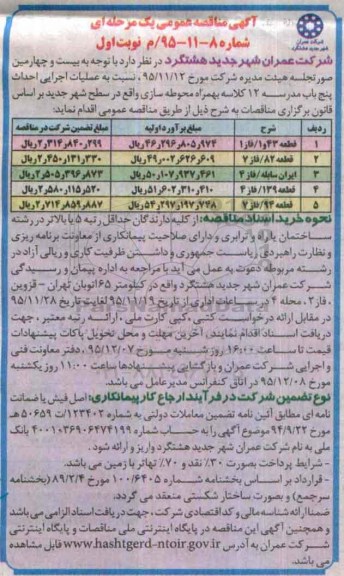 آگهی مناقصه عمومی یک مرحله ای
شماره ۸-۱۱-۹۵/م نوبت اول
شرکت عمران شهر جدید هشتگرد در نظر دارد با توجه به بیست و چهارمین
صورتجلسه هیئت مدیره شرکت مورخ ۹۵/۱۱/۱۲، نسبت به عملیات اجرایی احداث
پنج باب مدرسه ۱۲ کلاسه بهمراه محوطه سازی واقع در سطح شهر جدید بر اساس
قانون برگزاری مناقصات به شرح ذیل از طریق مناقصه عمومی اقدام نماید:
ردیف شرح مبلغ برآورد اولیه مبلغ تضمین شرکت در مناقصه
۱ قطعه ۴۳و۱/فاز۱
۲ قطعه ۸۲/فاز ۷
۳ ایران سابله/فاز ۴
۴ قطعه ۱۳۹/فاز ۴
۵ قطعه ۹۴/فاز ۷
نحوه خرید اسناد مناقصه: از کلیه دارندگان حداقل رتبه ۵ یا بالاتر در رشته
ساختمان یا راه و ترابری و دارای صلاحیت پیمانکاری از معاونت برنامه ریزی
و نظارت راهبردی ریاست جمهوری و داشتن ظرفیت کاری و ریالی آزاد در
رشته مربوطه دعوت به عمل می آید با مراجعه به اداره پیمان و رسیدگی
شرکت عمران شهر جدید هشتگرد واقع در کیلومتر ۶۵ اتوبان تهران - قزوین
، فاز ۲، محله ۴ در ساعات اداری از تاریخ ۹۵/۱۱/۱۹ لغایت تاریخ ۹۵/۱۱/۲۸
در مقابل ارائه درخواست کتبی، کپی کارت ملی، ارائه رتبه معتبر، جهت
دریافت اسناد اقدام نمایند. آخرین مهلت و محل تحویل پاکات پیشنهادات
قیمت تا ساعت ۱۶:۰۰ روز شنبه مورخ ۹۵/۱۲/۰۷، دفتر معاونت فنی
و اجرایی شرکت عمران و بازگشایی پیشنهادها ساعت ۱۱:۰۰ روز یکشنبه
مورخ ۹۵/۱۲/۰۸ در اتاق کنفرانس مدیرعامل می باشد.
نوع تضمین شرکت در فرآیند ارجاع کار پیمانکاری: اصل فیش یا ضمانت
نامه ای مطابق آئین نامه تضمین معاملات دولتی به شماره ۱۲۳۴۰۲/ت ۵۰۶۵۹ هـ
مورخ ۹۴/۹/۲۲ موضوع آگهی را به حساب شماره ۴۰۰۱۰۳۶۹۰۶۴۷۴۱۹۹ بانک
ملی به نام شرکت عمران شهر جدید هشتگرد واریز و ارائه شود.
- شرایط پرداخت بصورت ۳۰٪ نقد و ۷۰٪ تهاتر با زمین می باشد.
- قرارداد بر اساس بخشنامه شماره ۱۰۰/۶۴۰۵ مورخ ۸۹/۲/۴ (بخشنامه
سرجمع) و بصورت ساختار شکستی منعقد می گردد.
ضمنا ارائه شناسه ملی و کد اقتصادی شرکت، جهت دریافت اسناد الزامی می باشد
و همچنین آگهی این مناقصه در پایگاه اینترنتی ملی مناقصات و پایگاه اینترنتی
شرکت عمران به آدرس www.hashtgerd-ntoir.gov.ir قابل مشاهده
می باشد.